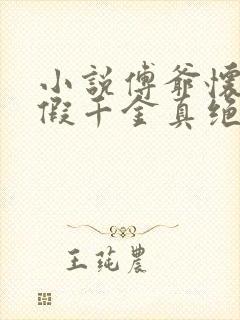 小說傅爺懷
假千金真絕
王莼農